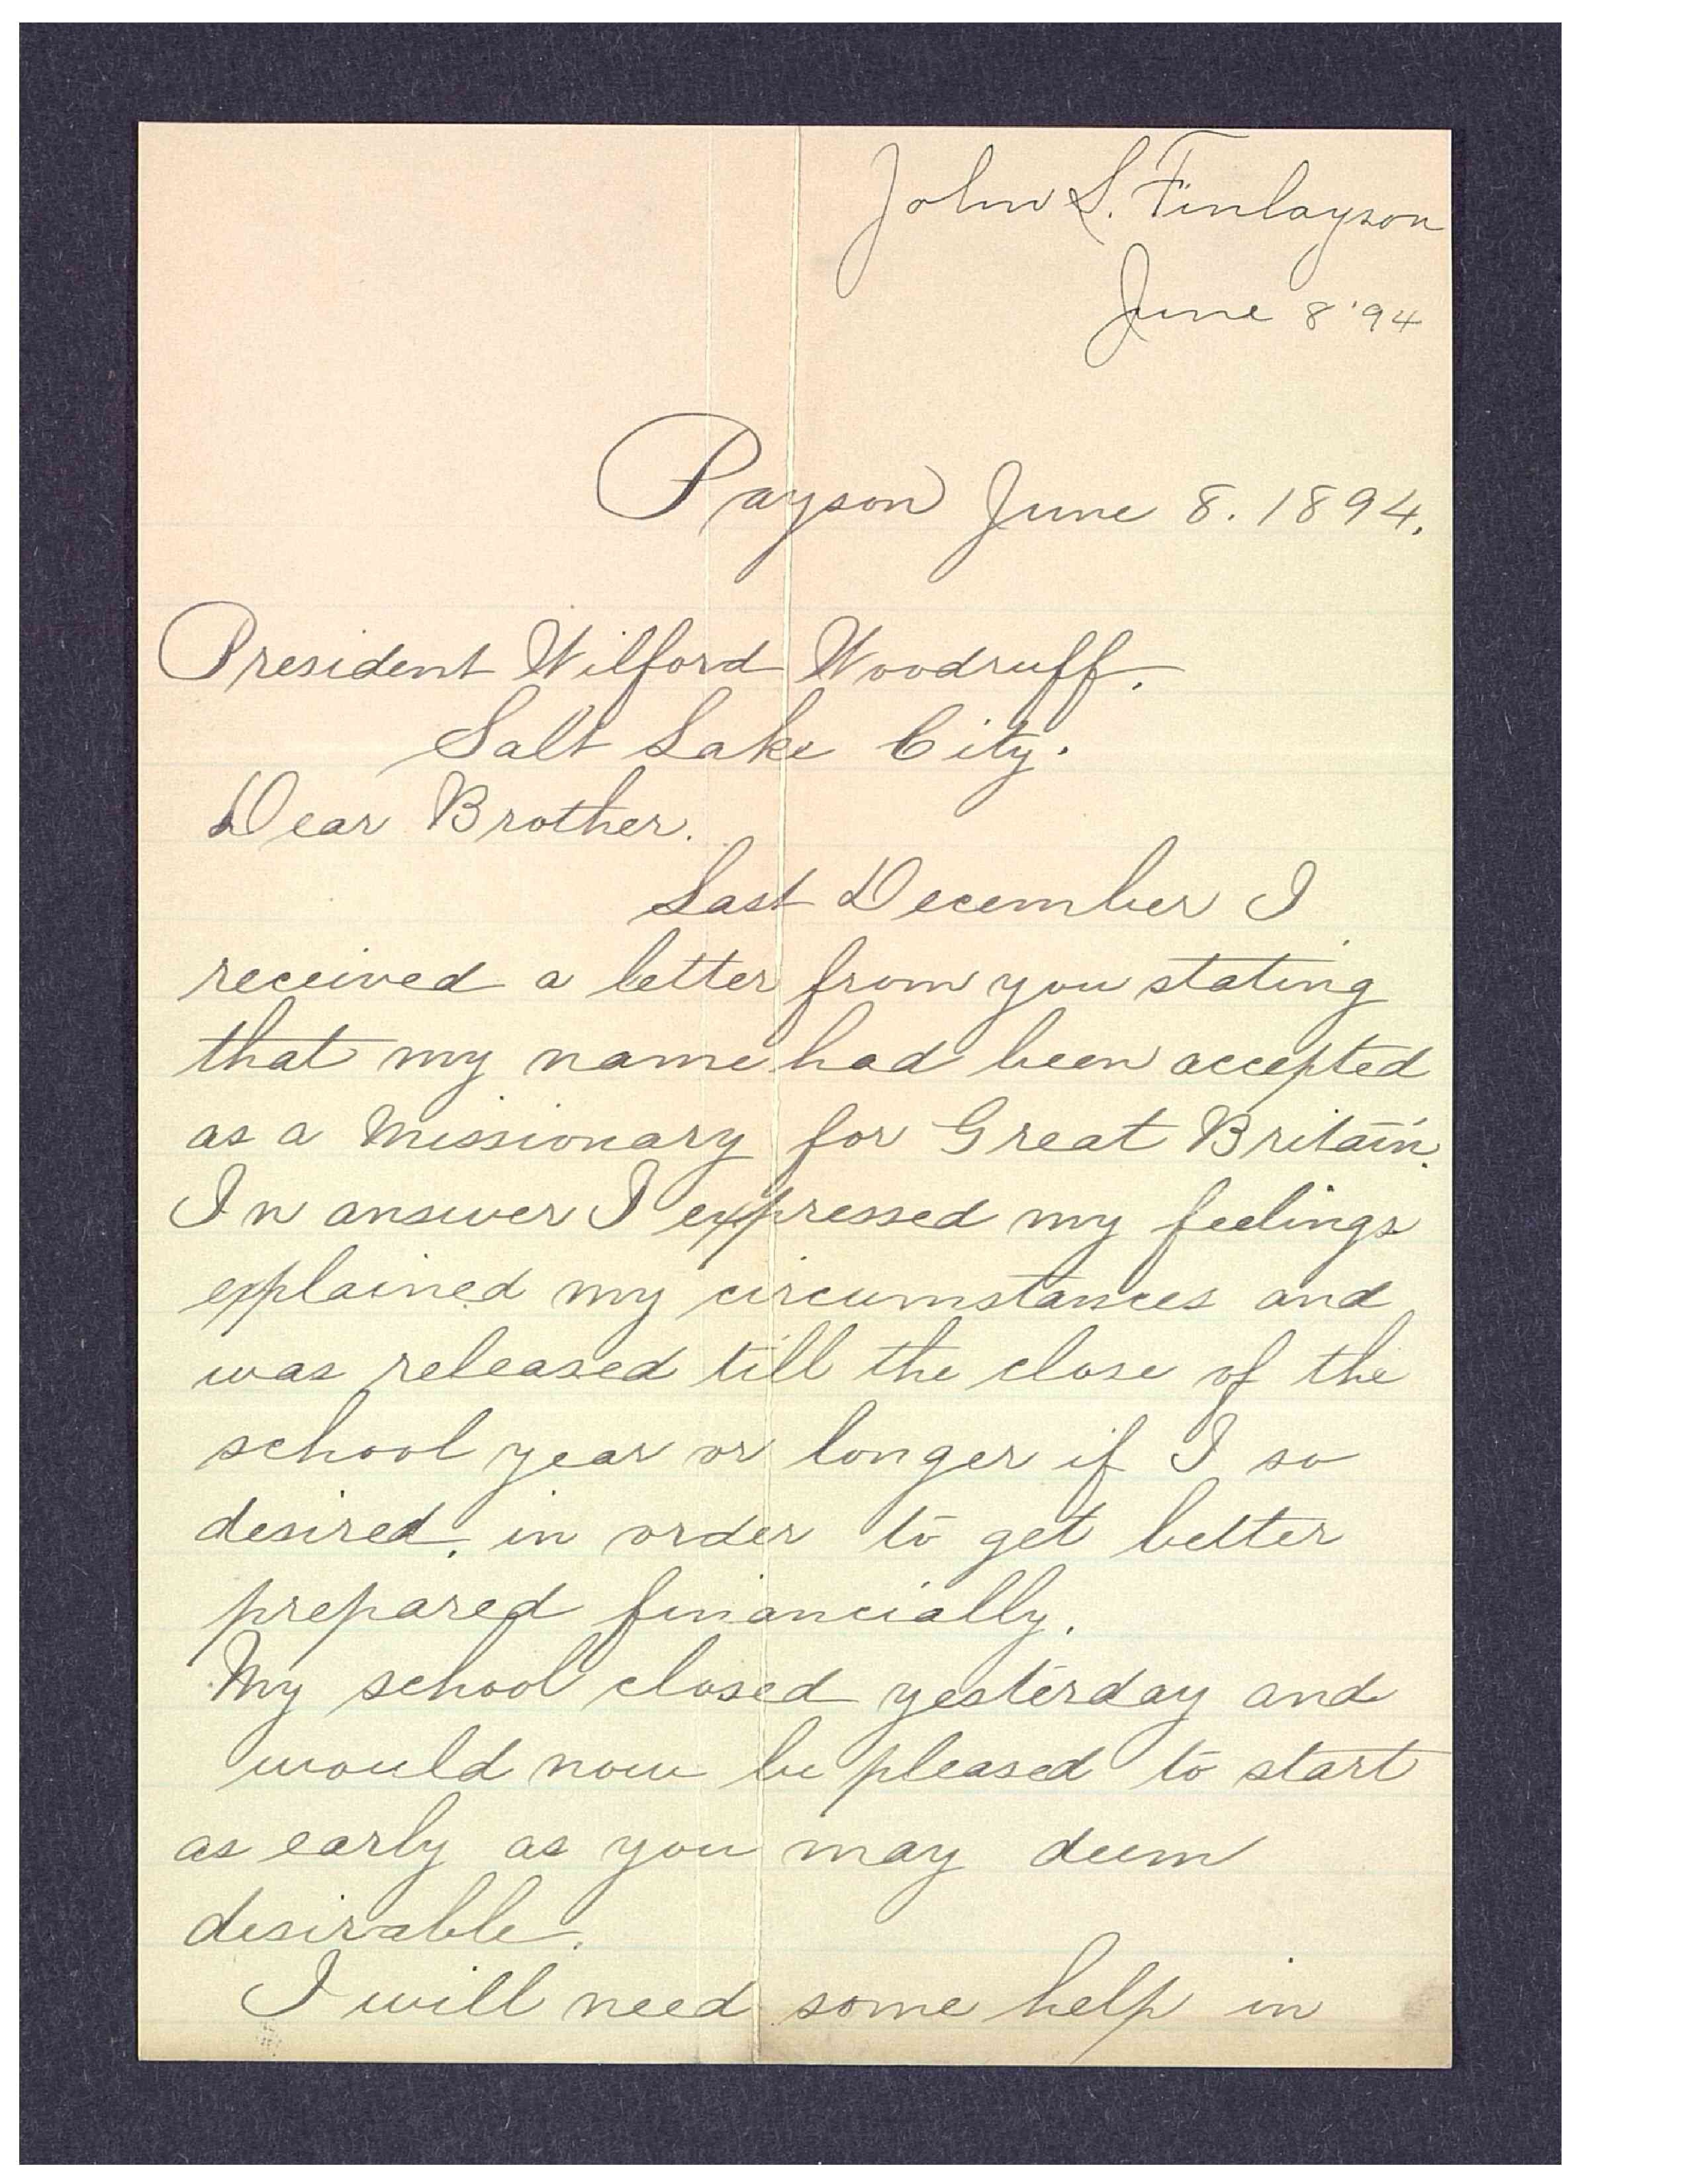 John S. Finlayson
June 8 '94
Payson June 8. 1894.
President Wilford Woodruff.
Salt Lake City.
Dear Brother.
Last December I
received a letter from you stating
that my name had been accepted
as a Missionary for Great Britain.
In answer I expressed my feelings
explained my circumstances and
was released till the close of the
school year or longer if I so
desired, in order to get better
prepared financially.
My school closed yesterday and
would now be pleased to start
as early as you may deem
desirable.
I will need some help in